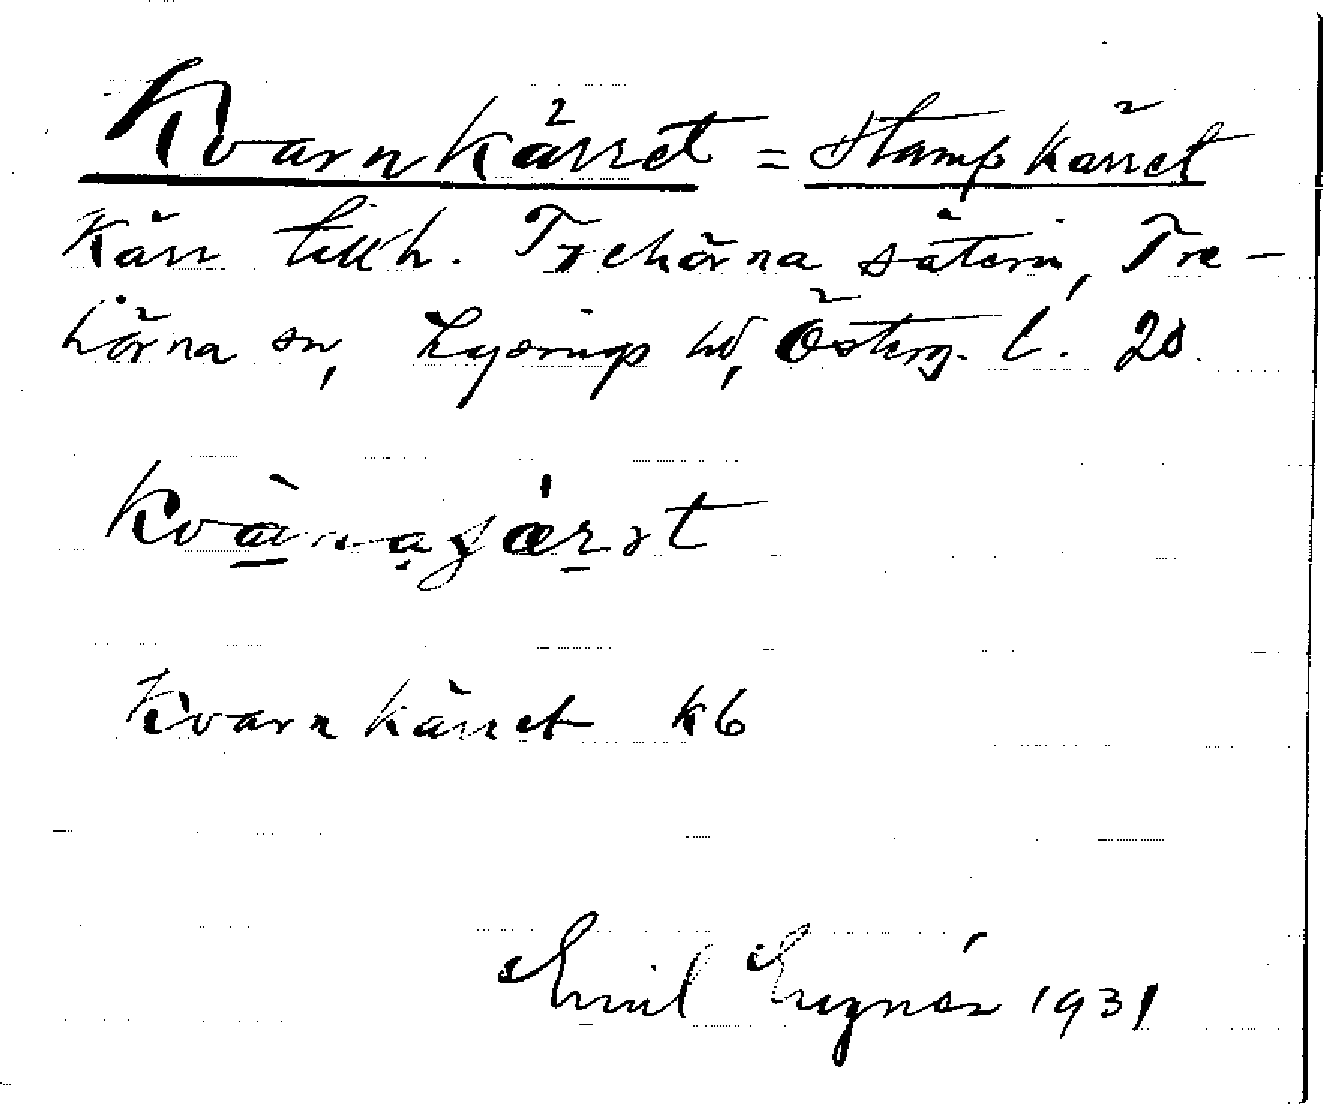 Kvarnkärret = Stampkärret
Kärr tillh. Trehörna säteri, Tre-
hörna sn, Lysings hd, Österg. l. 20.
Kvarnkärret K6
Emil 1931